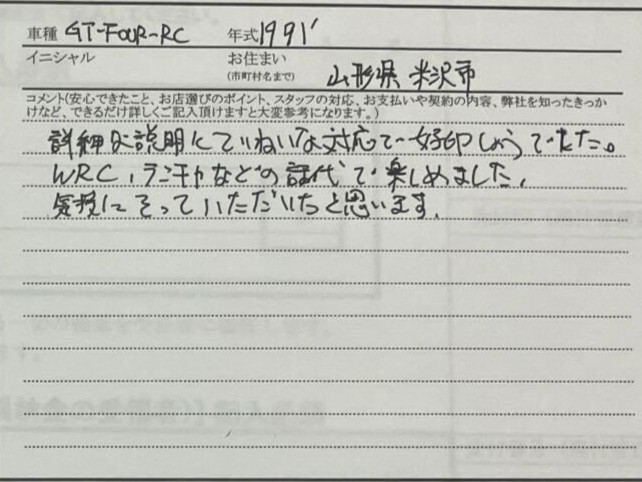 車種 GT-FOUR-RC 年式 1991'
イニシャル お住まい
(市町村名まで) 山形県 米沢市
コメント(安心できたこと、お店選びのポイント、スタッフの対応、お支払いや契約の内容、弊社を知ったきっか
けなど、できるだけ詳しくご記入頂けますと大変参考になります。)
詳細な説明にていねいな対応で好印しょうでした。
WRC、ランチャなどの話代で楽しめました。
気持にそっていただいたと思います。